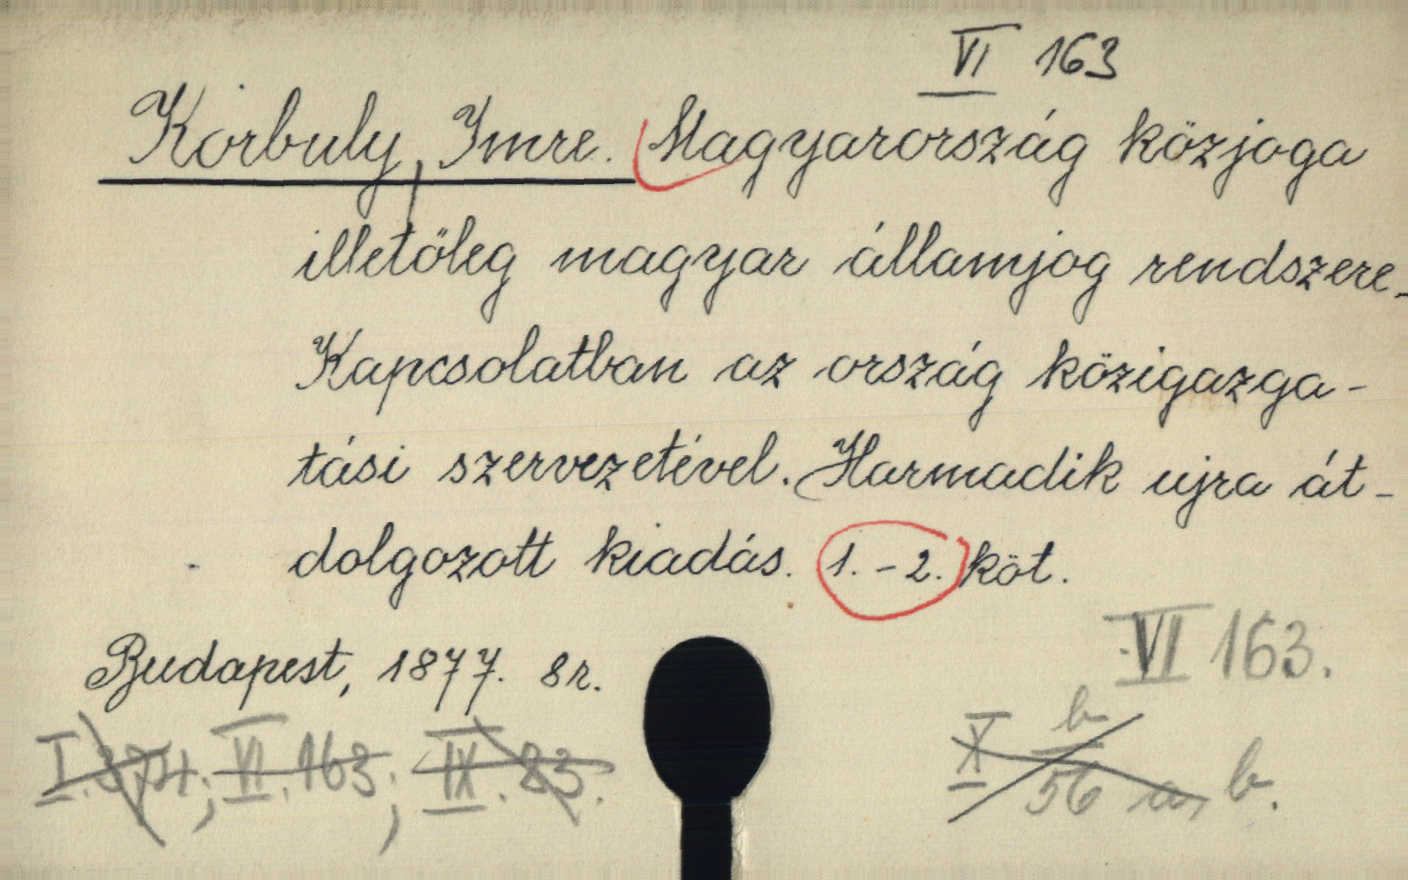 VI 163
Korbuly, Imre. Magyarország közjoga
illetőleg magyar államjog rendszere_
Kapcsolatban az ország közigazga-
tási szervezetével. Harmadik ujra át-
dolgozott kiadás. 1.-2. köt.
Budapest, 1877. 8r.
VI 163.
I. 371; VI. 163; IX. 83.
X b/56 a, b.